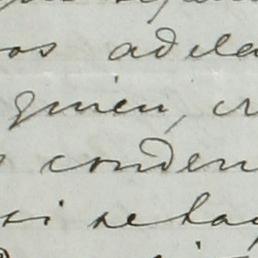 os adela
quien, cr
conden
si se hay